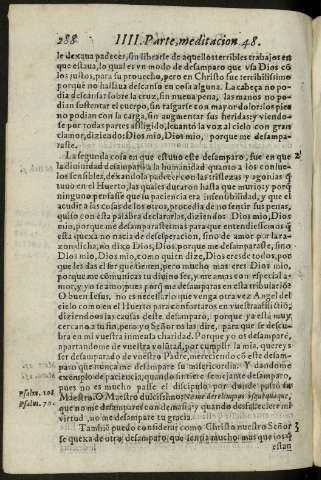 288 IIII. Parte, meditacion 48.
le dexaua padecer, sin librarle de aquellos terribles trabajos en
que estaua, lo qual es vn modo de desamparo que vsa Dios cõ
los justos, para su prouecho, pero en Christo fue terribilissimo
porque no hallaua descanso en cosa alguna. La cabeça no po-
dia descansar sobre la cruz, sin nueua pena, las manos no po-
dian sustentar el cuerpo, sin rasgarse con mayor dolor: los pies
no podian con la carga, sin augmentar sus heridas: y viendo-
se por todas partes affligido, leuantò la voz al cielo con gran
clamor, diziendo: Dios mio, Dios mio, porque me desampa-
raste.
La segunda cosa en que estuuo este desamparo, fue en que 2
la diuinidad desamparò a la humanidad quanto a los consue-
los sensibles, dexandola padecer con las tristezas y agonias q̃
tuuo en el Huerto, las quales duraron hasta que murio; y porq̃
ninguno pensasse que su paciencia era insensibilidad, y que el
acudir a las cosas de los otros, procedia de no sentir sus penas,
quiso con esta palabra declararlos, diziendo: Dios mio, Dios
mio, porque me desamparaste: mas para que entendiessemos q̃
esta quexa no nacia de desesperacion, sino de amor por la ra-
zon dicha, no dixo Dios, Dios, porque me desamparaste, sino
Dios mio, Dios mio, como quien dize, Dios eres de todos, por
que les das el ser que tienen, pero mucho mas eres Dios mio,
porque me comunicas tu diuino ser, y me amas con especial a-
mor, y yo te amo; pues porq̃ me desamparas en esta tribulaciõ?
O buen Iesus, no es necessario que venga otra vez Angel del
cielo como en el Huerto para confortaros en vuestra afflictiõ,
diziendoos las causas deste desamparo, porque ya està muy
cercano a su fin, pero yo Señor os las dire, para que se descu-
bra en mi vuestra inmensa charidad. Porque yo os desamparè,
apartandome de vuestra voluntad, por cumplir la mia, quereys
ser desamparado de vuestro Padre, mereciendo cõ este desam-
paro que nunca me desampare su misericordia: Y dandome
exemplo de paciencia, quando sintiere semejante desamparo,
pues no es mucho passe el discipulo por donde passò su
Psalm. 118. Maestro. O Maestro dulcissimo: Ne me derelinquas vsquequaque,
Psalm. 70. que no me desampares con demasia: y quando desfalleciere mi
virtud, no me desampare tu gracia.
Tambiē puedo considerar como Christo nuestro Señor 3
se quexa de otro desamparo, que sentia mucho mas que los q̃
estan